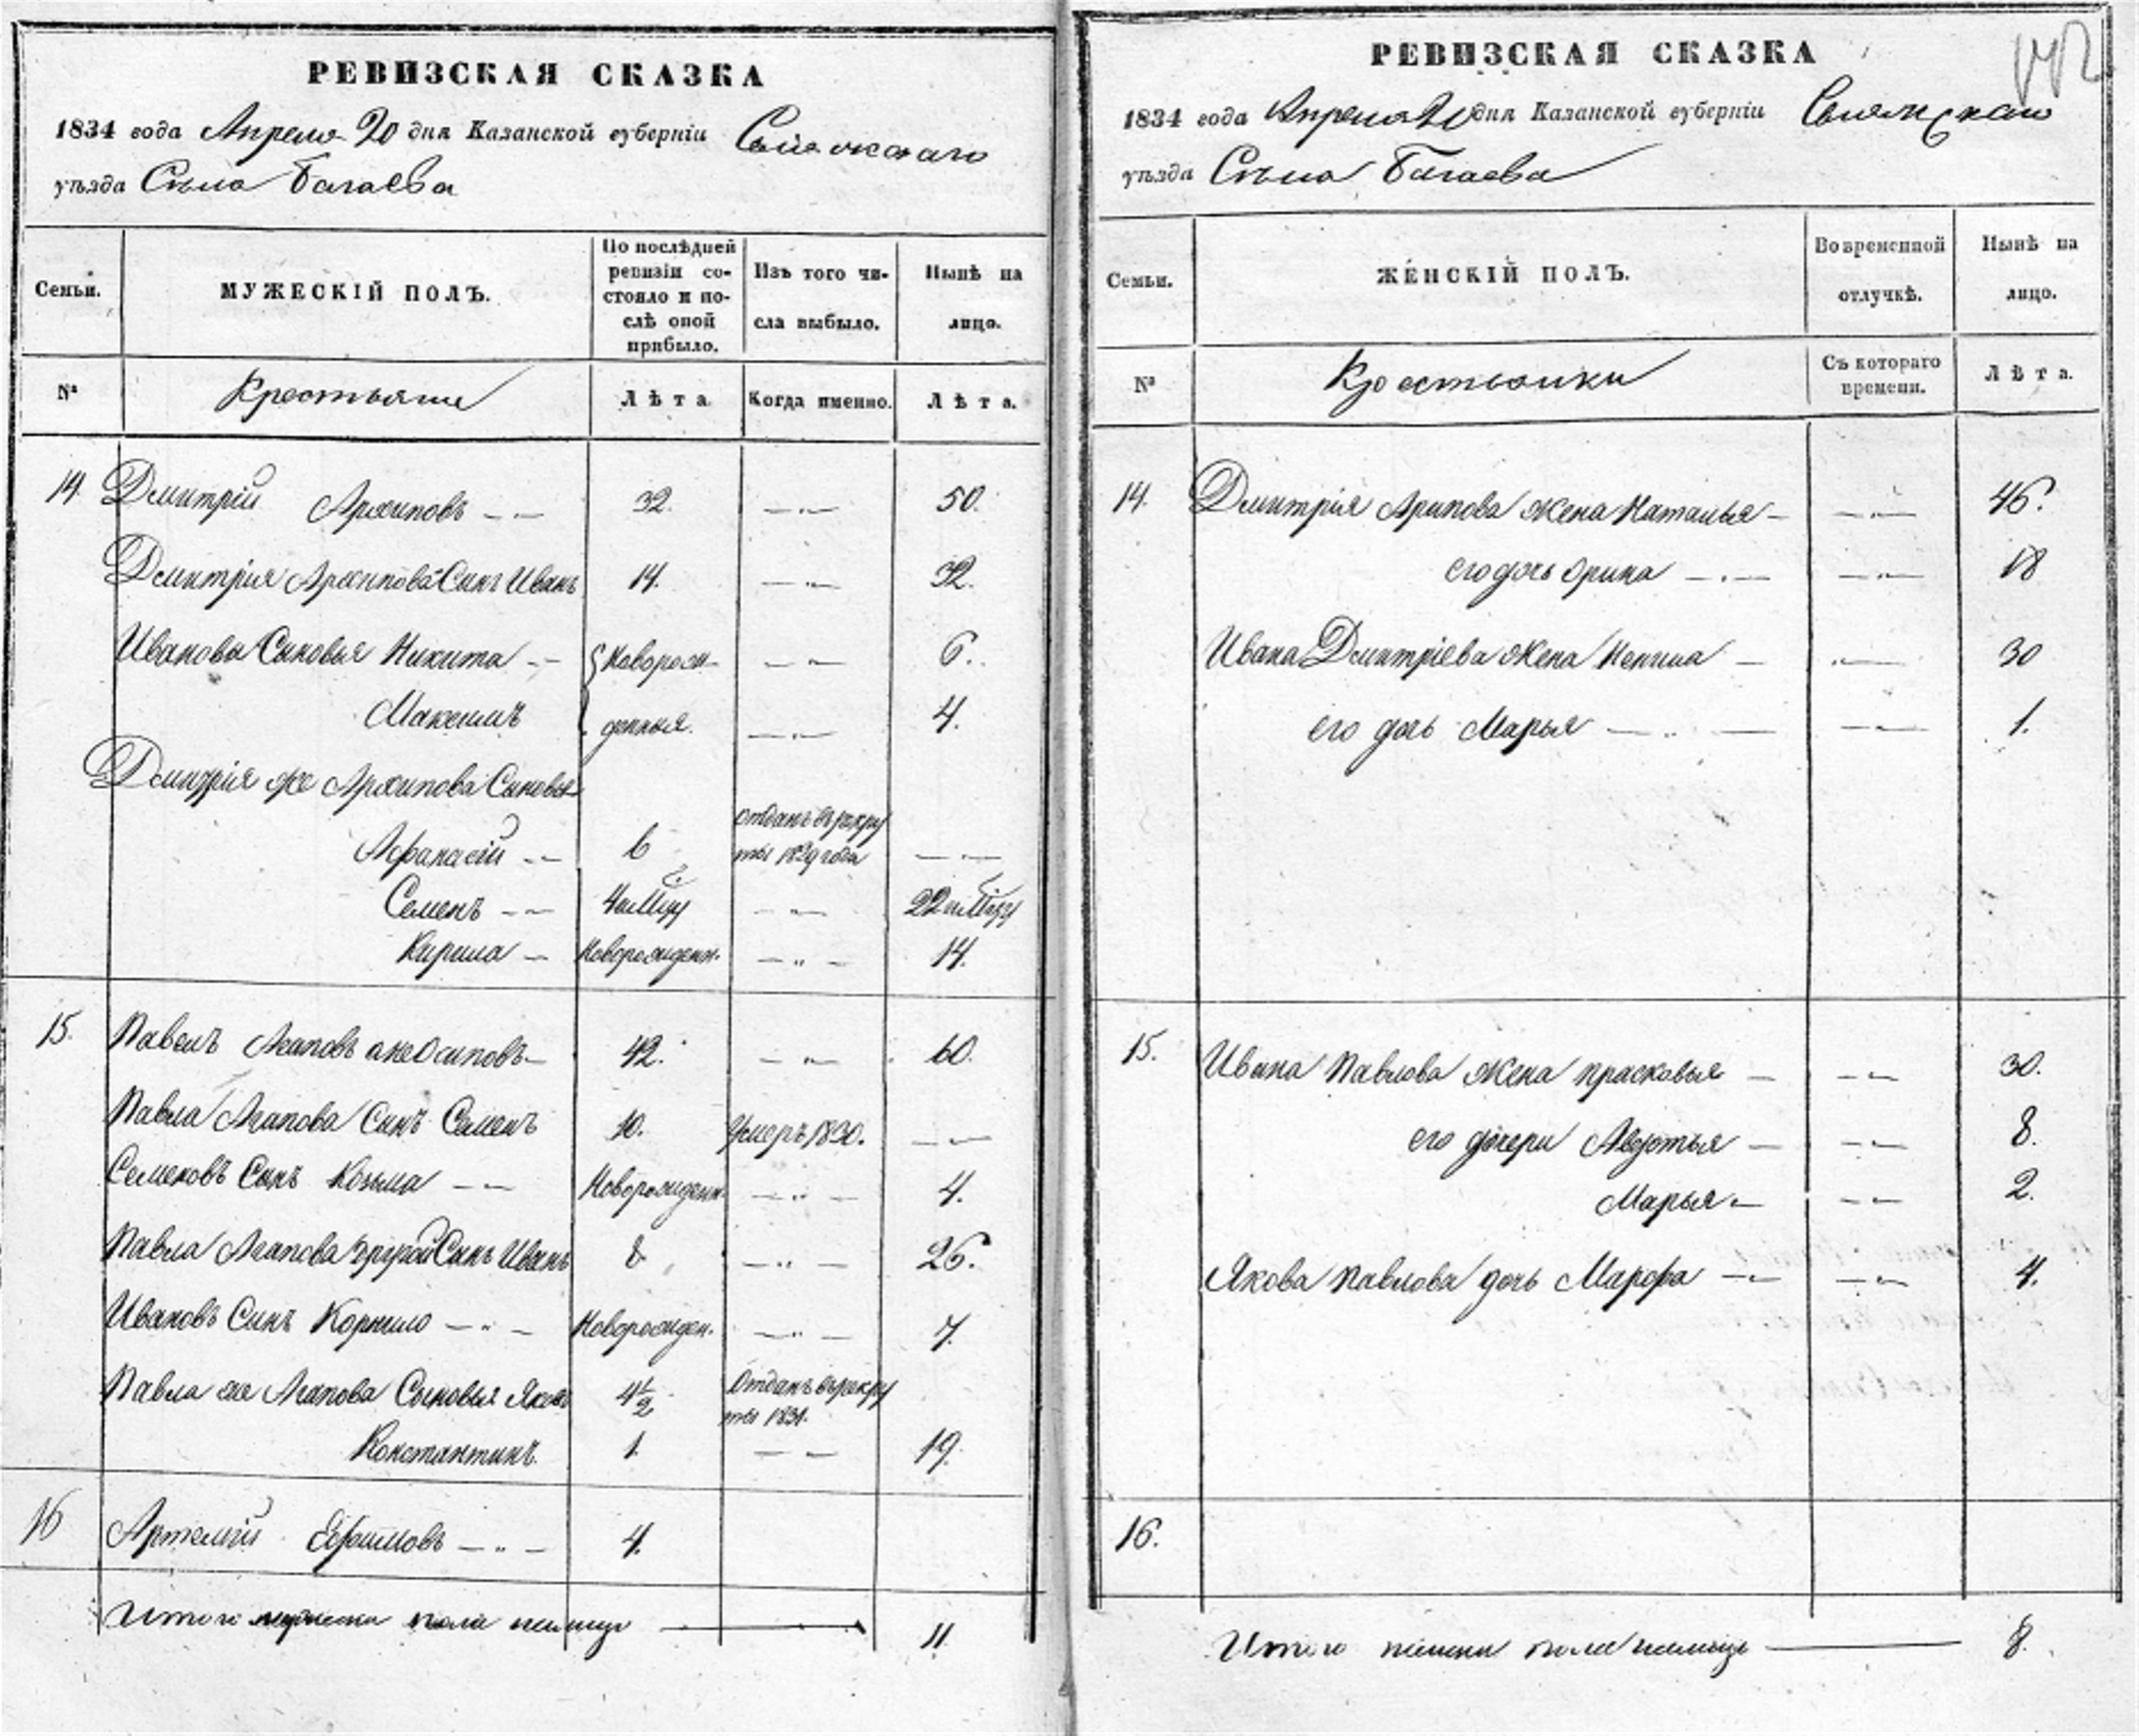 РЕВИЗСКАЯ СКАЗКА
1834 года Апреля 20 дня Казанской губернiи Свiяжскаго
уѣзда Сѣла Багаева
Семьи.
МУЖЕСКIЙ ПОЛЪ.
По послѣдней ревизiи со-
стояло и по-
слѣ оной
прибыло.
Изъ того чи-
сла выбыло.
Нынѣ на
лицо.
№
Крестьяне
Лѣта
Когда именно.
Лѣта.
14. Дмитрiй Архиповъ 32. 50.
Дмитрiя Архипова Сынъ Иванъ 14. 32.
Ивановы Сыновья Никита Новорож- 6.
Максимъ денныя. 4.
Дмитрiя же Архипова Сыновья
Афанасiй 6 Отданъ въ рекру
ты 1829 года
Семенъ
Кирила Новорожденн. 14.
15. Павелъ Агаповъ а не Осиповъ 42. 60.
Павла Агапова Сынъ Семенъ 10. Умеръ 1830.
Семеновъ Сынъ Козьма Новорожденн. 4.
Павла Агапова другой Сынъ Иванъ 8 26.
Ивановъ Сынъ Корнило Новорожден. 7.
Павла же Агапова Сыновья Яковъ 4½ Отданъ въ рекру
ты 1831.
Константинъ 1. 19.
16 Артемiй Ефимовъ 4.
Итого мужеска пола налицо 11.
РЕВИЗСКАЯ СКАЗКА
1834 года Апреля 20 дня Казанской губернiи Свiяжскаго
уѣзда Сѣла Багаева
Семьи.
ЖЕНСКIЙ ПОЛЪ.
Во временной
отлучкѣ.
Нынѣ на
лицо.
№
Крестьянки
Съ котораго
времени.
Лѣта.
14. Дмитрiя Арипова жена Наталья 46.
его дочь Орина 18
Ивана Дмитрiева жена Ненила 30
его дочь Марья 1.
15. Ивана Павлова жена Прасковья 30.
его дочери Авдотья 8.
Марья 2.
Якова Павлова дочь Марфа 4.
16.
Итого женска пола налицо 8.